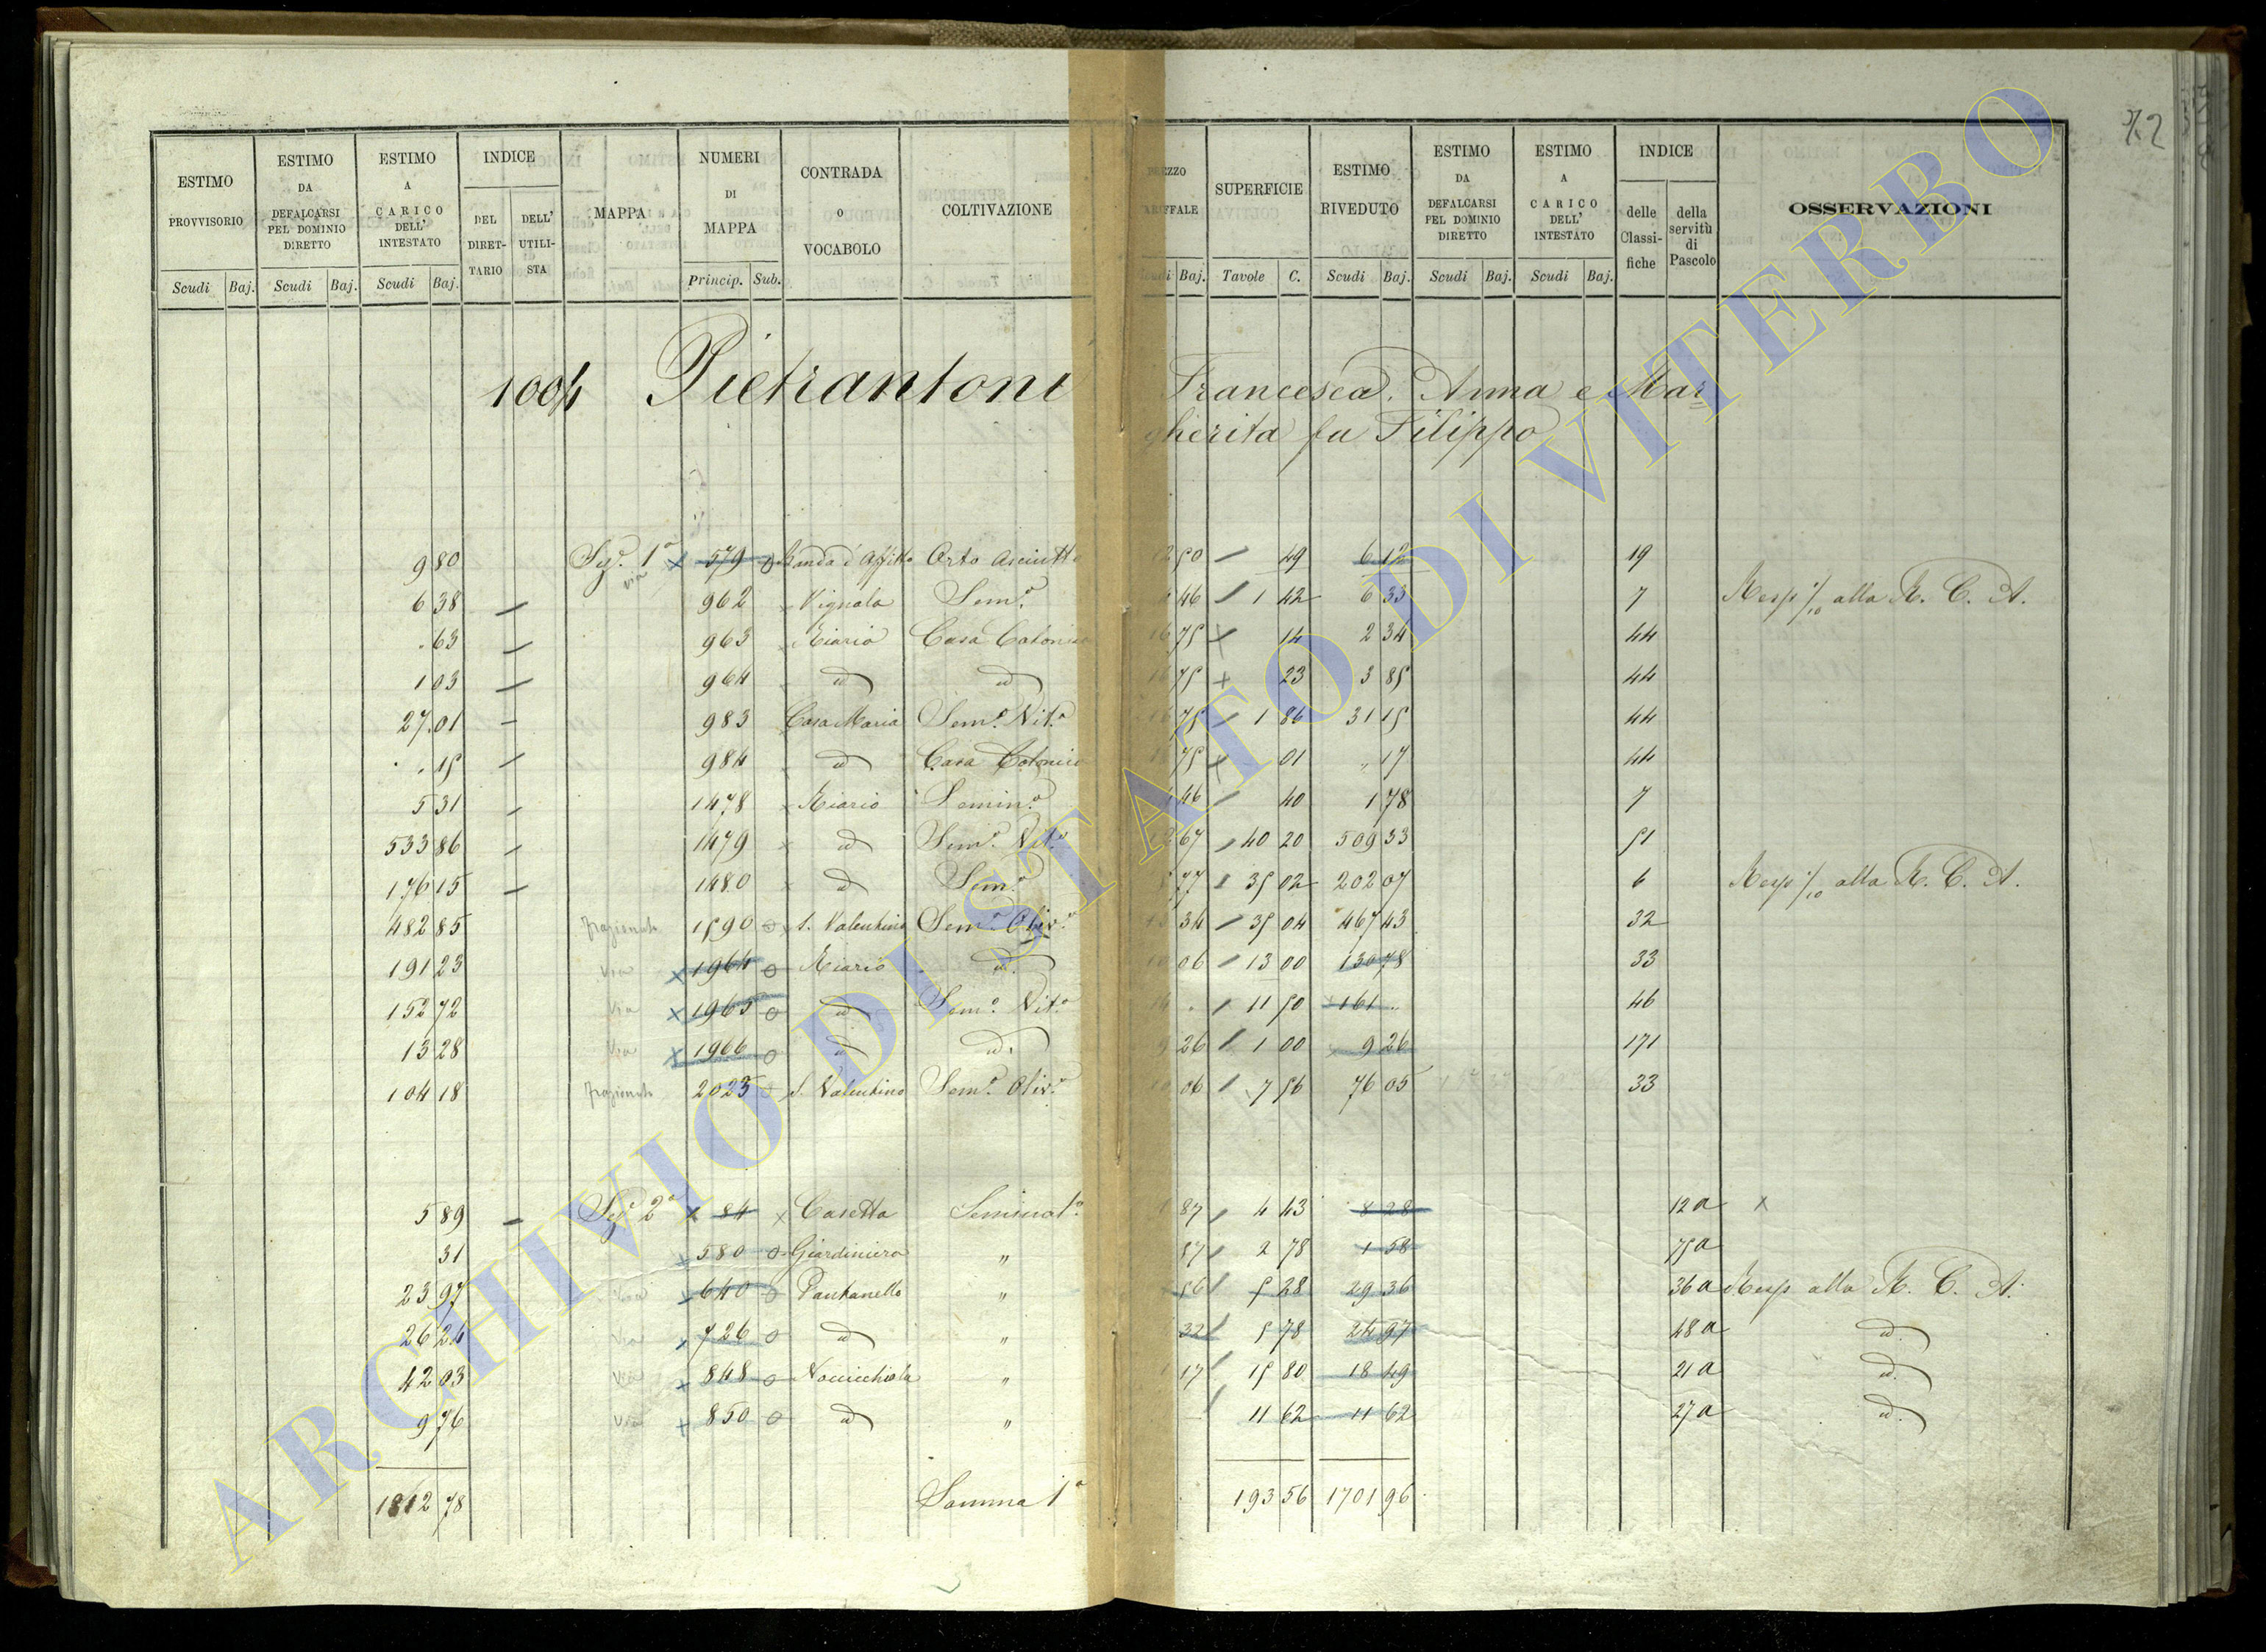 72
ESTIMO PROVVISORIO
ESTIMO DA DEFALCARSI PEL DOMINIO DIRETTO
ESTIMO A CARICO DELL' INTESTATO
INDICE
DEL DIRETTARIO
DELL' UTILISTA
MAPPA
NUMERI DI MAPPA
CONTRADA o VOCABOLO
COLTIVAZIONE
SUPERFICIE
ESTIMO RIVEDUTO
ESTIMO DA DEFALCARSI PEL DOMINIO DIRETTO
ESTIMO A CARICO DELL' INTESTATO
INDICE
delle Classifiche
della servitù di Pascolo
OSSERVAZIONI
Scudi Baj. Scudi Baj. Scudi Baj. Princip. Sub. Baj. Tavole C. Scudi Baj. Scudi Baj. Scudi Baj.
1004 Pietrantoni Francesca, Anna e Mar
gherita fu Filippo
9 80 Sez. 1a 579 Orto Asciutto 50 49 6 12 19
6 38 962 Vignola Sem.o 46 1 42 6 33 7 alla R. C. A.
. 63 963 Riario Casa Colonica 75 14 2 34 44
1 03 964 id id 75 23 3 85 44
27 01 983 Casa Maria Sem.o Vit.o 75 1 86 31 15 44
. 15 984 id Casa Colonica 75 01 " 17 44
5 31 1478 Riario Semin.o 46 40 1 78 7
533 86 1479 id Sem.o Vit.o 67 40 20 509 33 51
176 15 1480 id Sem.o 77 35 02 202 07 6 alla R. C. A.
482 85 frazionato 1590 S. Valentino Sem.o Oliv.o 34 35 04 467 43 32
191 23 Via 1964 Riario id. 06 13 00 130 78 33
152 72 Via 1965 id Sem.o Vit.o 11 50 161 .. 46
13 28 Via 1966 id id. 26 1 00 9 26 171
104 18 frazionato 2023 S. Valentino Sem.o Oliv.o 06 7 56 76 05 33
5 89 Sez. 2a 84 Casetta Seminat.o 87 4 43 8 28 12a x
31 580 Giardiniera " 87 2 78 1 58 75a
23 97 Via 640 Pantanello " 56 5 28 29 36 36a alla R. C. A.
26 24 Via 726 id " 32 5 78 24 97 48a id.
42 03 Via 848 Nocicchiola " 17 15 80 18 49 21a id.
9 76 Via 850 id " 11 62 11 62 27a id.
1812 78 Somma 1a 193 56 1701 96
ARCHIVIO DI STATO DI VITERBO